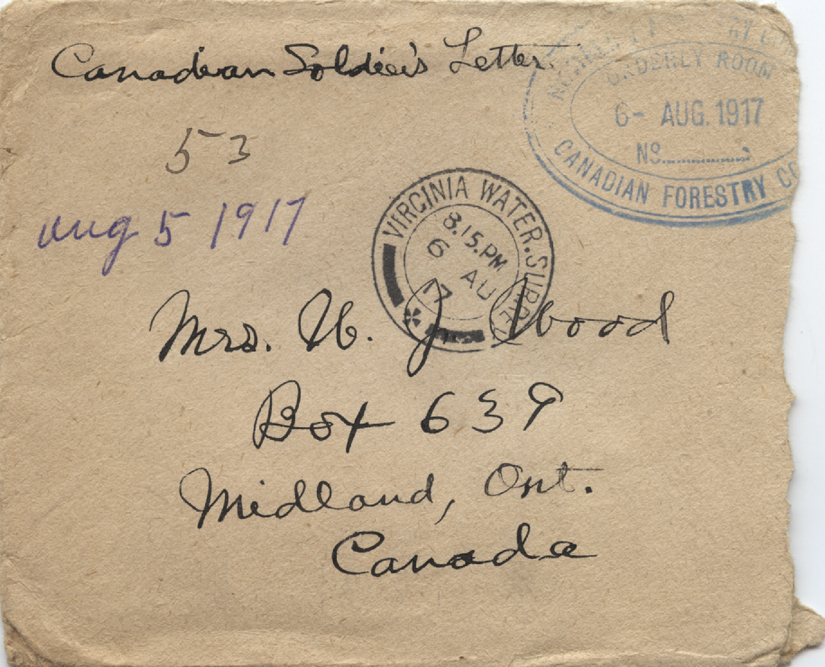 Canadian Soldier's Letter.
ORDERLY ROOM
6- AUG. 1917
No.
CANADIAN FORESTRY CO
53
aug 5 1917
VIRGINIA WATER. SURREY
8.15.PM
6 AU
17
Mrs. W. J. Wood
Box 639
Midland, Ont.
Canada